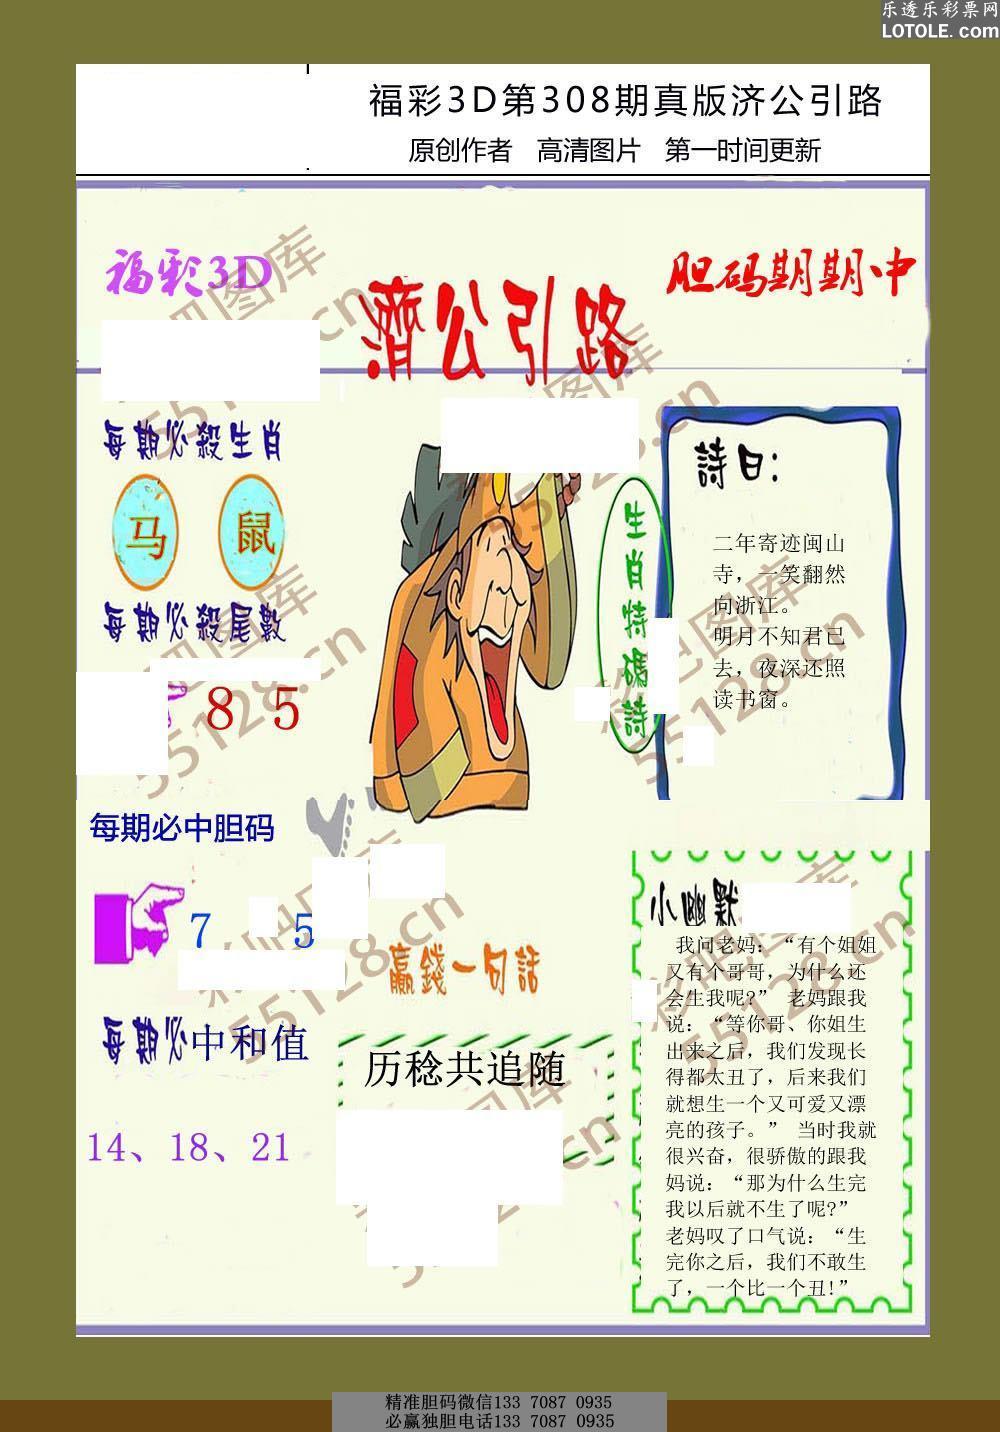 乐透乐彩票网
LOTOLE.com
福彩3D第308期真版济公引路
原创作者 高清图片 第一时间更新
福彩3D
濟公引路
胆码期期中
每期必殺生肖
马 鼠
每期必殺尾數
8 5
生肖特碼詩
詩曰：
二年寄迹闽山
寺，一笑翻然
向浙江。
明月不知君已
去，夜深还照
读书窗。
每期必中胆码
7 5
每期必中和值
14、18、21
贏錢一句話
历稔共追随
小幽默
我问老妈：“有个姐姐
又有个哥哥，为什么还
会生我呢?” 老妈跟我
说：“等你哥、你姐生
出来之后，我们发现长
得都太丑了，后来我们
就想生一个又可爱又漂
亮的孩子。” 当时我就
很兴奋，很骄傲的跟我
妈说：“那为什么生完
我以后就不生了呢?”
老妈叹了口气说：“生
完你之后，我们不敢生
了，一个比一个丑!”
55128.cn
55128.cn
55128.cn
55128.cn
精准胆码微信133 7087 0935
必赢独胆电话133 7087 0935